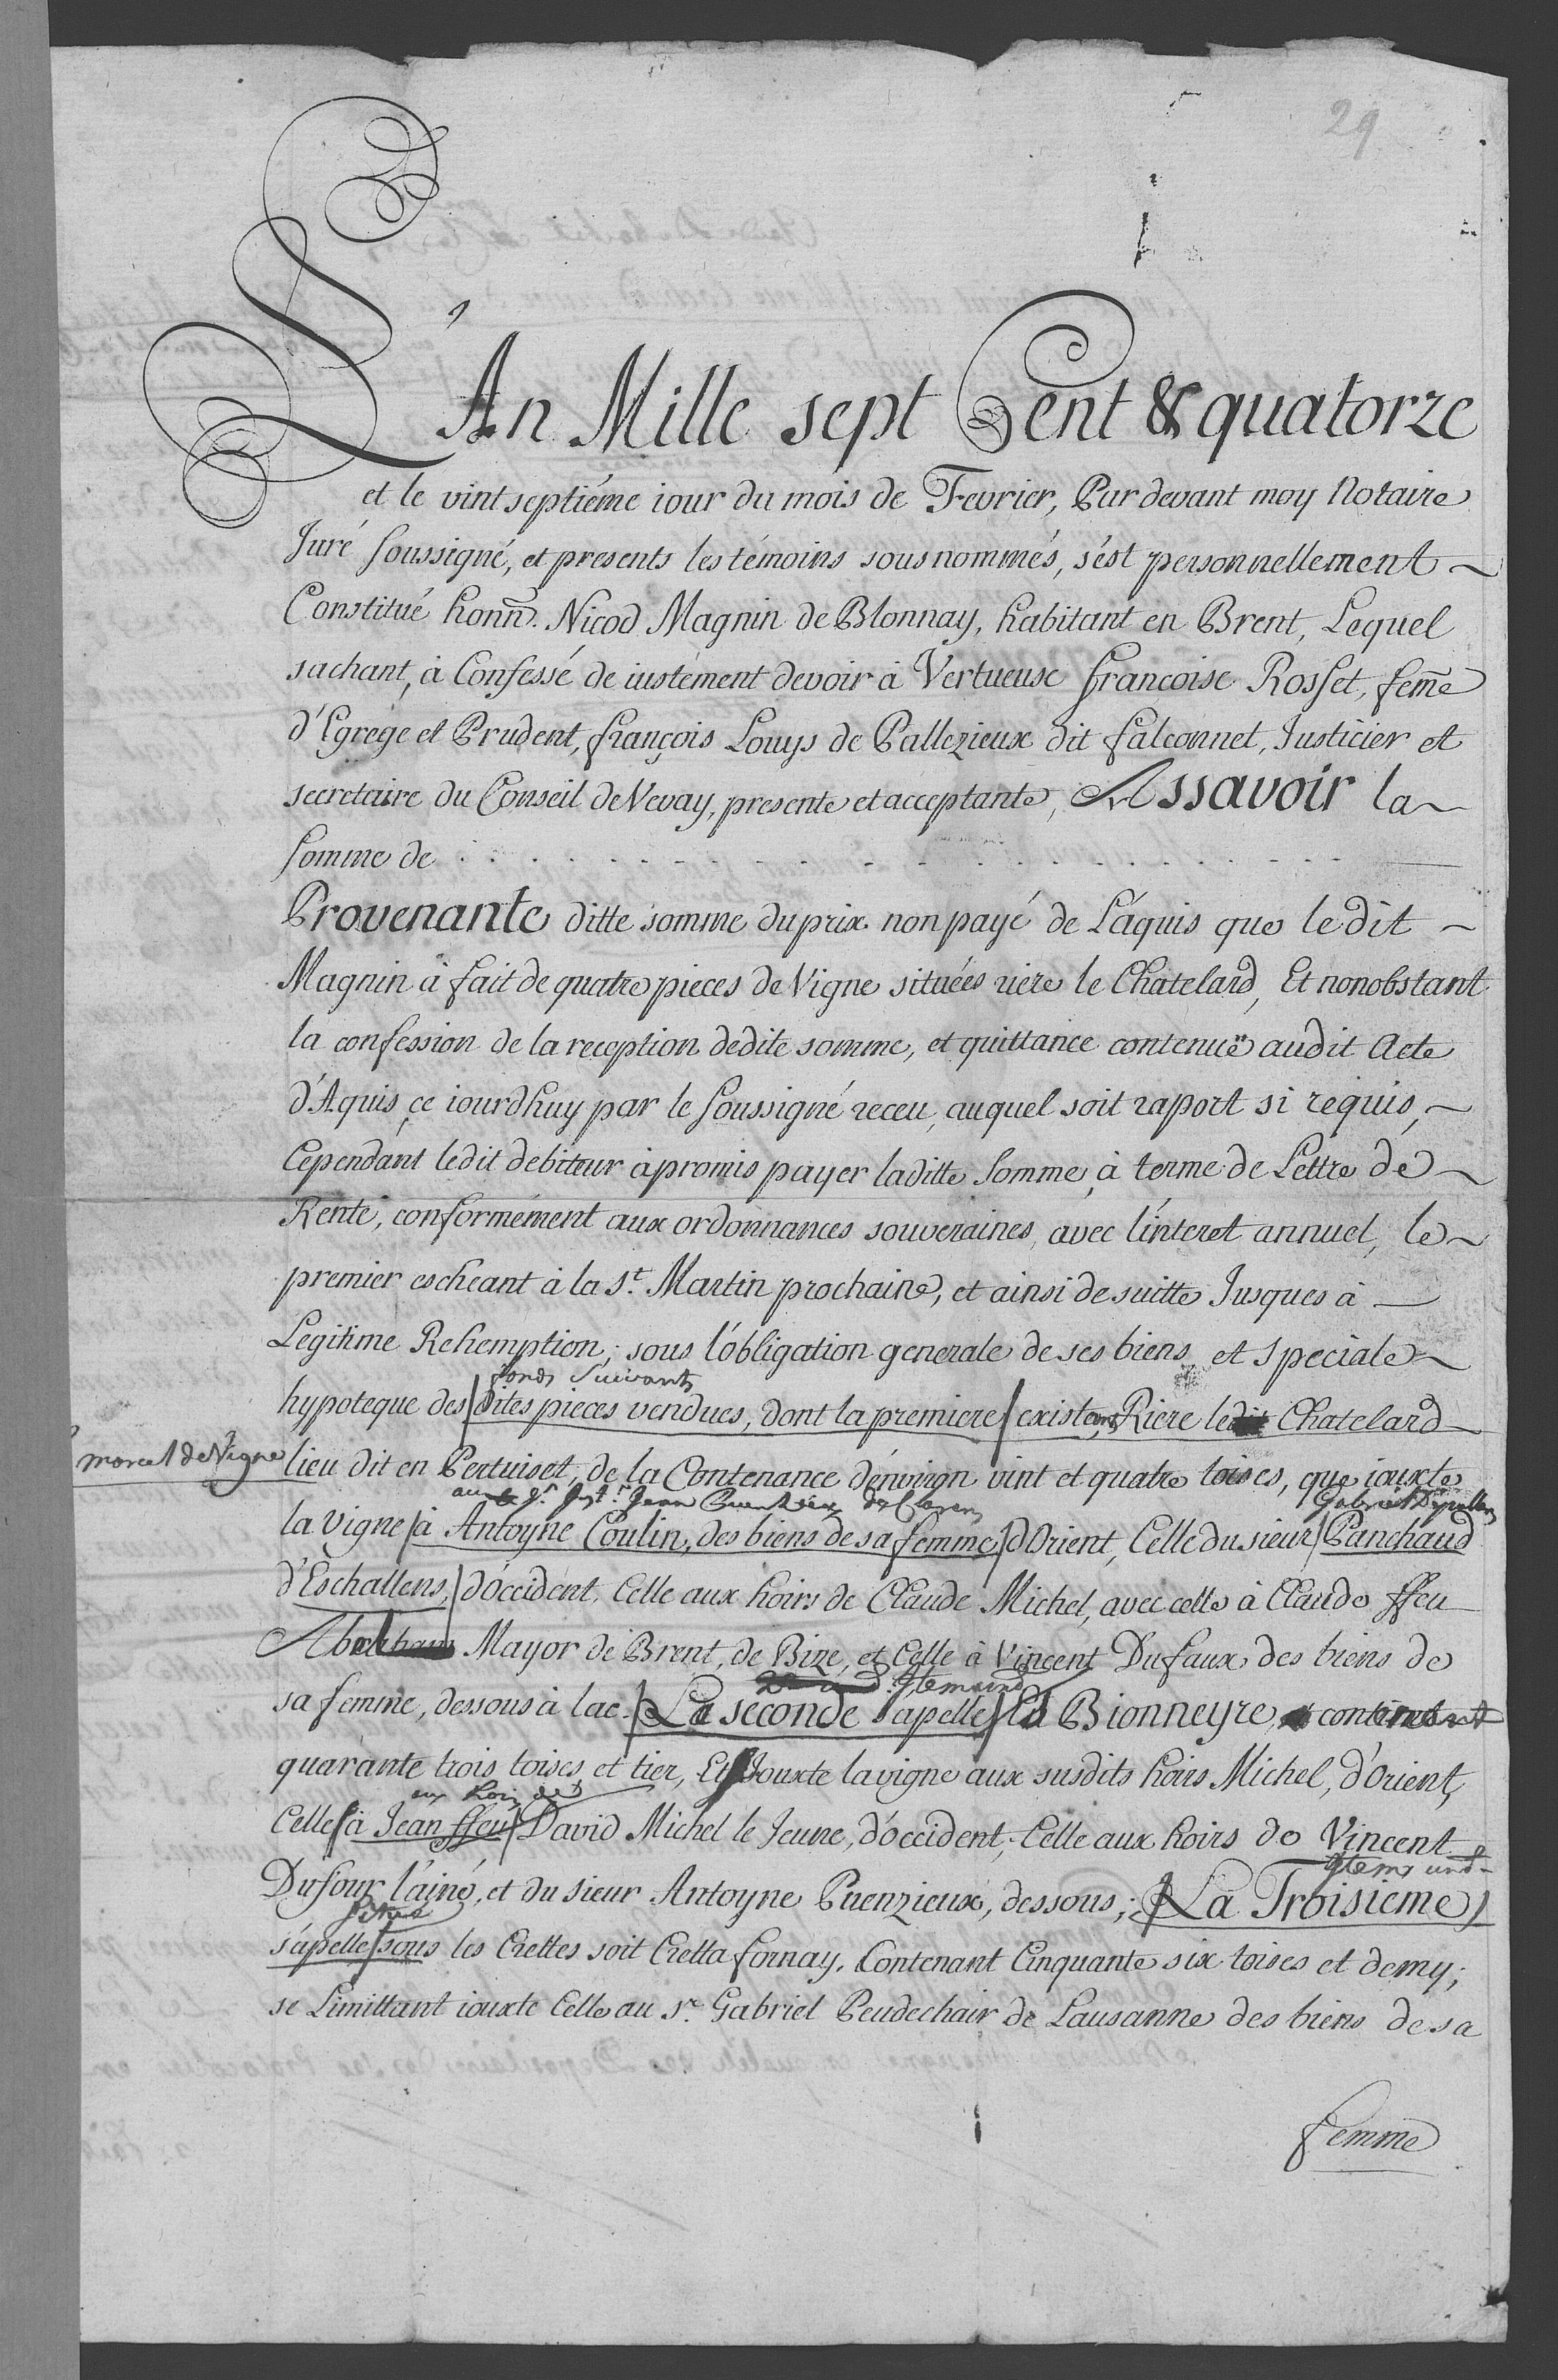 29
L'An Mille sept Cent & quatorze
et le vint septiéme iour du mois de Fevrier, Par devant moy Notaire
Juré soussigné, et presents les témoins sousnommés, s'ést personnellement
Constitué honn. Nicod Magnin de Blonnay, habitant en Brent, Lequel
sachant, à Confessé de iustement devoir à Vertueuse francoise Rosset, feme
d'Egrege et Prudent, françois Louys de Pallezieux dit falconnet, Justicier et
secretaire du Conseil de Vevay, presente et acceptante, Assavoir la
somme de
Provenante ditte somme du prix non payé de L'áquis que le dit
Magnin à fait de quatre pieces de Vigne situées riere le Chatelard, Et nonobstant
la confession de la reception dedite somme, et quittance contenuë audit Acte
d'Aquis ce iourdhuy par le soussigné receu, auquel soit raport si requis,
Cependant ledit debiteur à promis payer laditte somme, à terme de Lettre de
Rente, conformément aux ordonnances souveraines, avec l'interet annuel, le
premier escheant à la St. Martin prochaine, et ainsi de suitte Jusques à
Legitime Rehemption; sous l'óbligation generale de ses biens et speciale
fonds suivants
hypoteque des dites pieces vendues, dont la premiere existant Riere ledit Chatelard
morcel de Vigne
lieu dit en Pertuiset, de la Contenance d'énviron vint et quatre toises, que iouxte
Jean de Claren Gabriel
la Vigne à Antoyne Coulin, des biens de sa femme d'Orient, Celle du sieur Panchaud
d'Eschallens, d'óccident, Celle aux hoirs de Claude Michel, avec celle à Claude ffeu
Abraham Mayor de Brent, de Bize, et Celle à Vincent Dufaux des biens de
sa femme, dessous à lac. La seconde s'apelle La Bionneyre, contenant
quarante trois toises et tier, Et Jouxte la vigne aux susdits hoirs Michel, d'Orient,
aux hoirs de
Celle à Jean ffeu David Michel le Jeune, d'óccident; Celle aux hoirs de Vincent
Items une
Dufour l'áiné, et du sieur Antoyne Puenzieux, dessous; La Troisieme
s'apelle sous les Crettes soit Cretta fornay, Contenant Cinquante six toises et demy;
se Limittant iouxte Celle au Sr. Gabriel Peudechair de Lausanne des biens de sa
femme